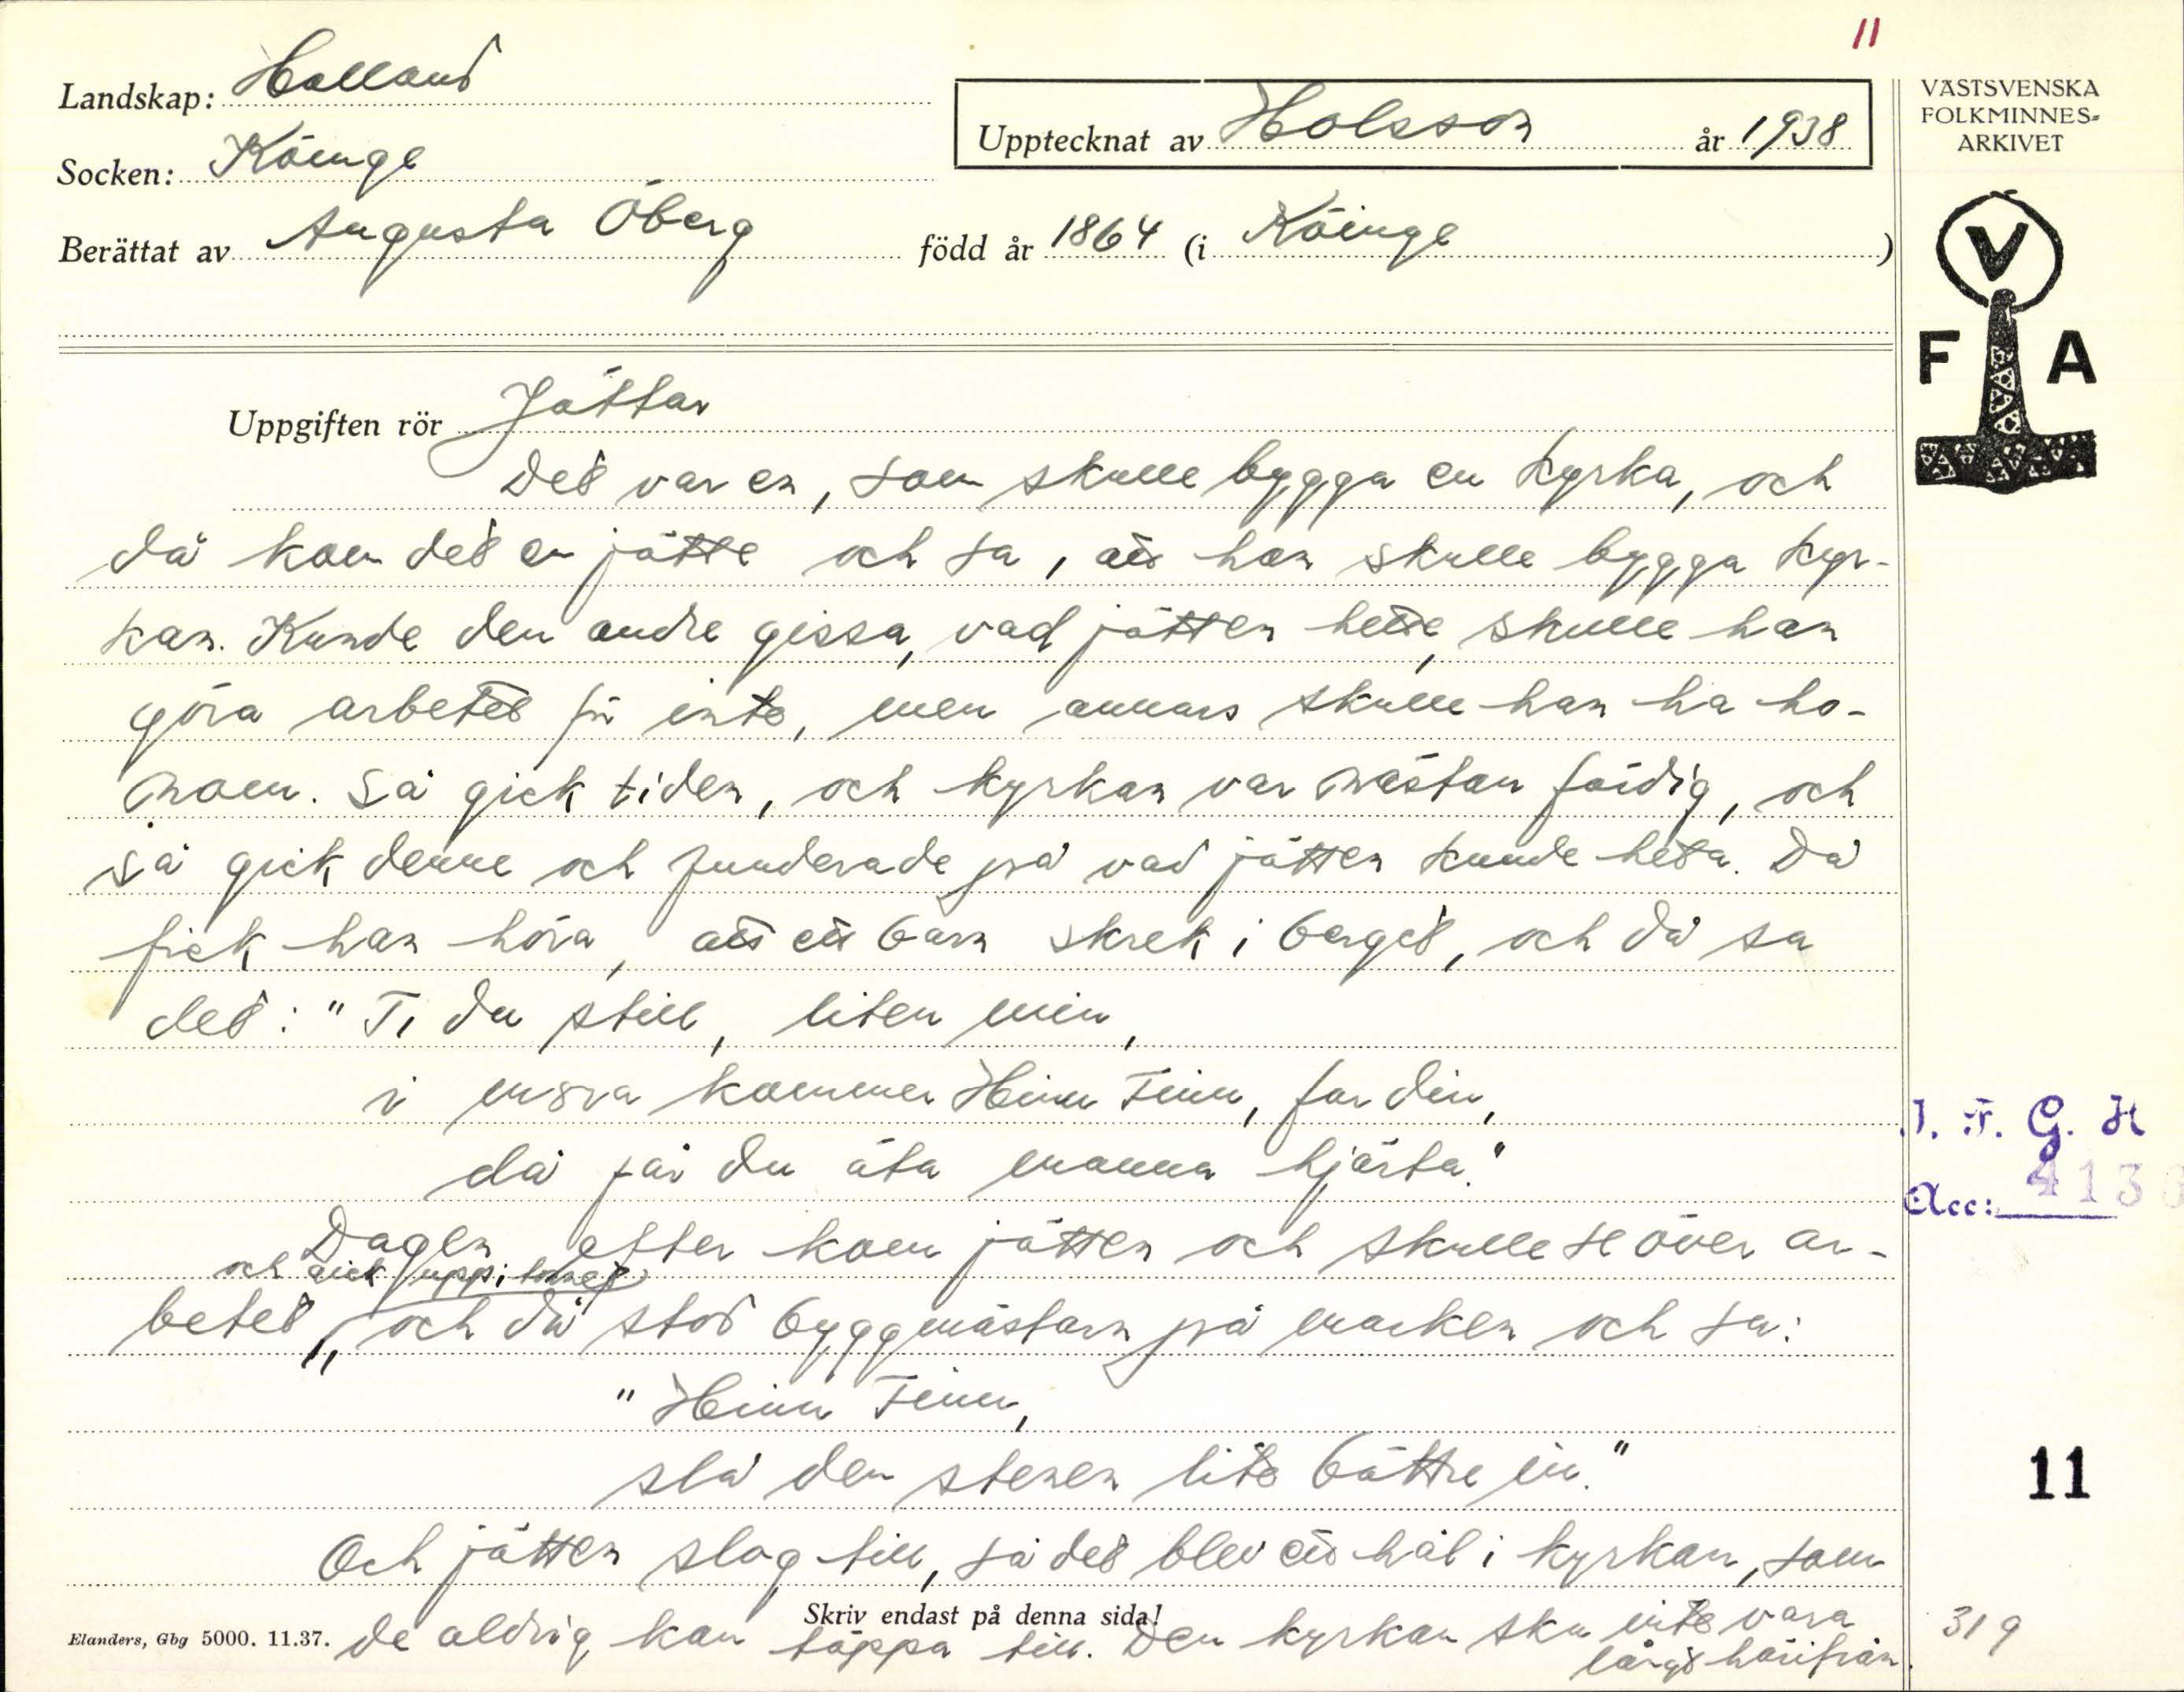 11
Landskap: Halland
Socken: Köinge
Upptecknat av Holsson år 1938
Berättat av Augusta Öberg född år 1864 (i Köinge)
VÄSTSVENSKA
FOLKMINNES-
ARKIVET
V
F A
Uppgiften rör Jättar
Det var en, som skulle bygga en kyrka, och
då kom det en jätte och sa, att han skulle bygga kyr-
kan. Kunde den andre gissa, vad jätten hette, skulle han
göra arbetet för inte, men annars skulle han ha ho-
nom. Så gick tiden, och kyrkan var nästan färdig, och
så gick denne och funderade på vad jätten kunde heta. Då
fick han höra, att ett barn skrek i berget, och då sa
det: "Ti du still, liten min,
i mora kommer Hinn Finn, far din,
då får du äta manna hjärta."
Dagen efter kom jätten och skulle se över ar-
och gick upp i tornet
betet, och då stod byggmästarn på marken och sa:
"Hinn Finn,
slå den stenen lite bättre in."
Och jätten slog till, så det blev ett hål i kyrkan, som
de aldrig kan täppa till. Den kyrkan sku inte vara
långt härifrån.
Skriv endast på denna sida!
Elanders, Gbg 5000. 11.37.
I. F. G. H
Acc: 4130
11
319